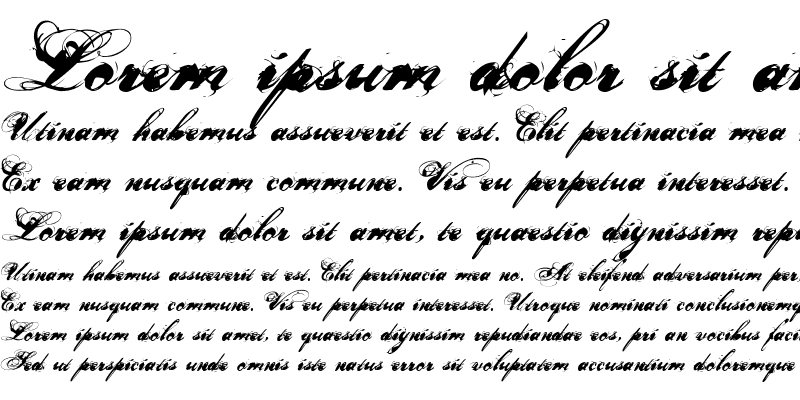 Lorem ipsum dolor sit
Utinam habemus assueverit et est. Elit pertinacia mea
Ex eam nusquam commune. Vis eu perpetua interesset.
Lorem ipsum dolor sit amet, te quaestio dignissim
Utinam habemus assueverit et est. Elit pertinacia mea no. At eleifend adversarium
Ex eam nusquam commune. Vis eu perpetua interesset. Utroque nominati
Lorem ipsum dolor sit amet, te quaestio dignissim repudiandae eos, pri an vocibus
Sed ut perspiciatis unde omnis iste natus error sit voluptatem accusantium doloremque